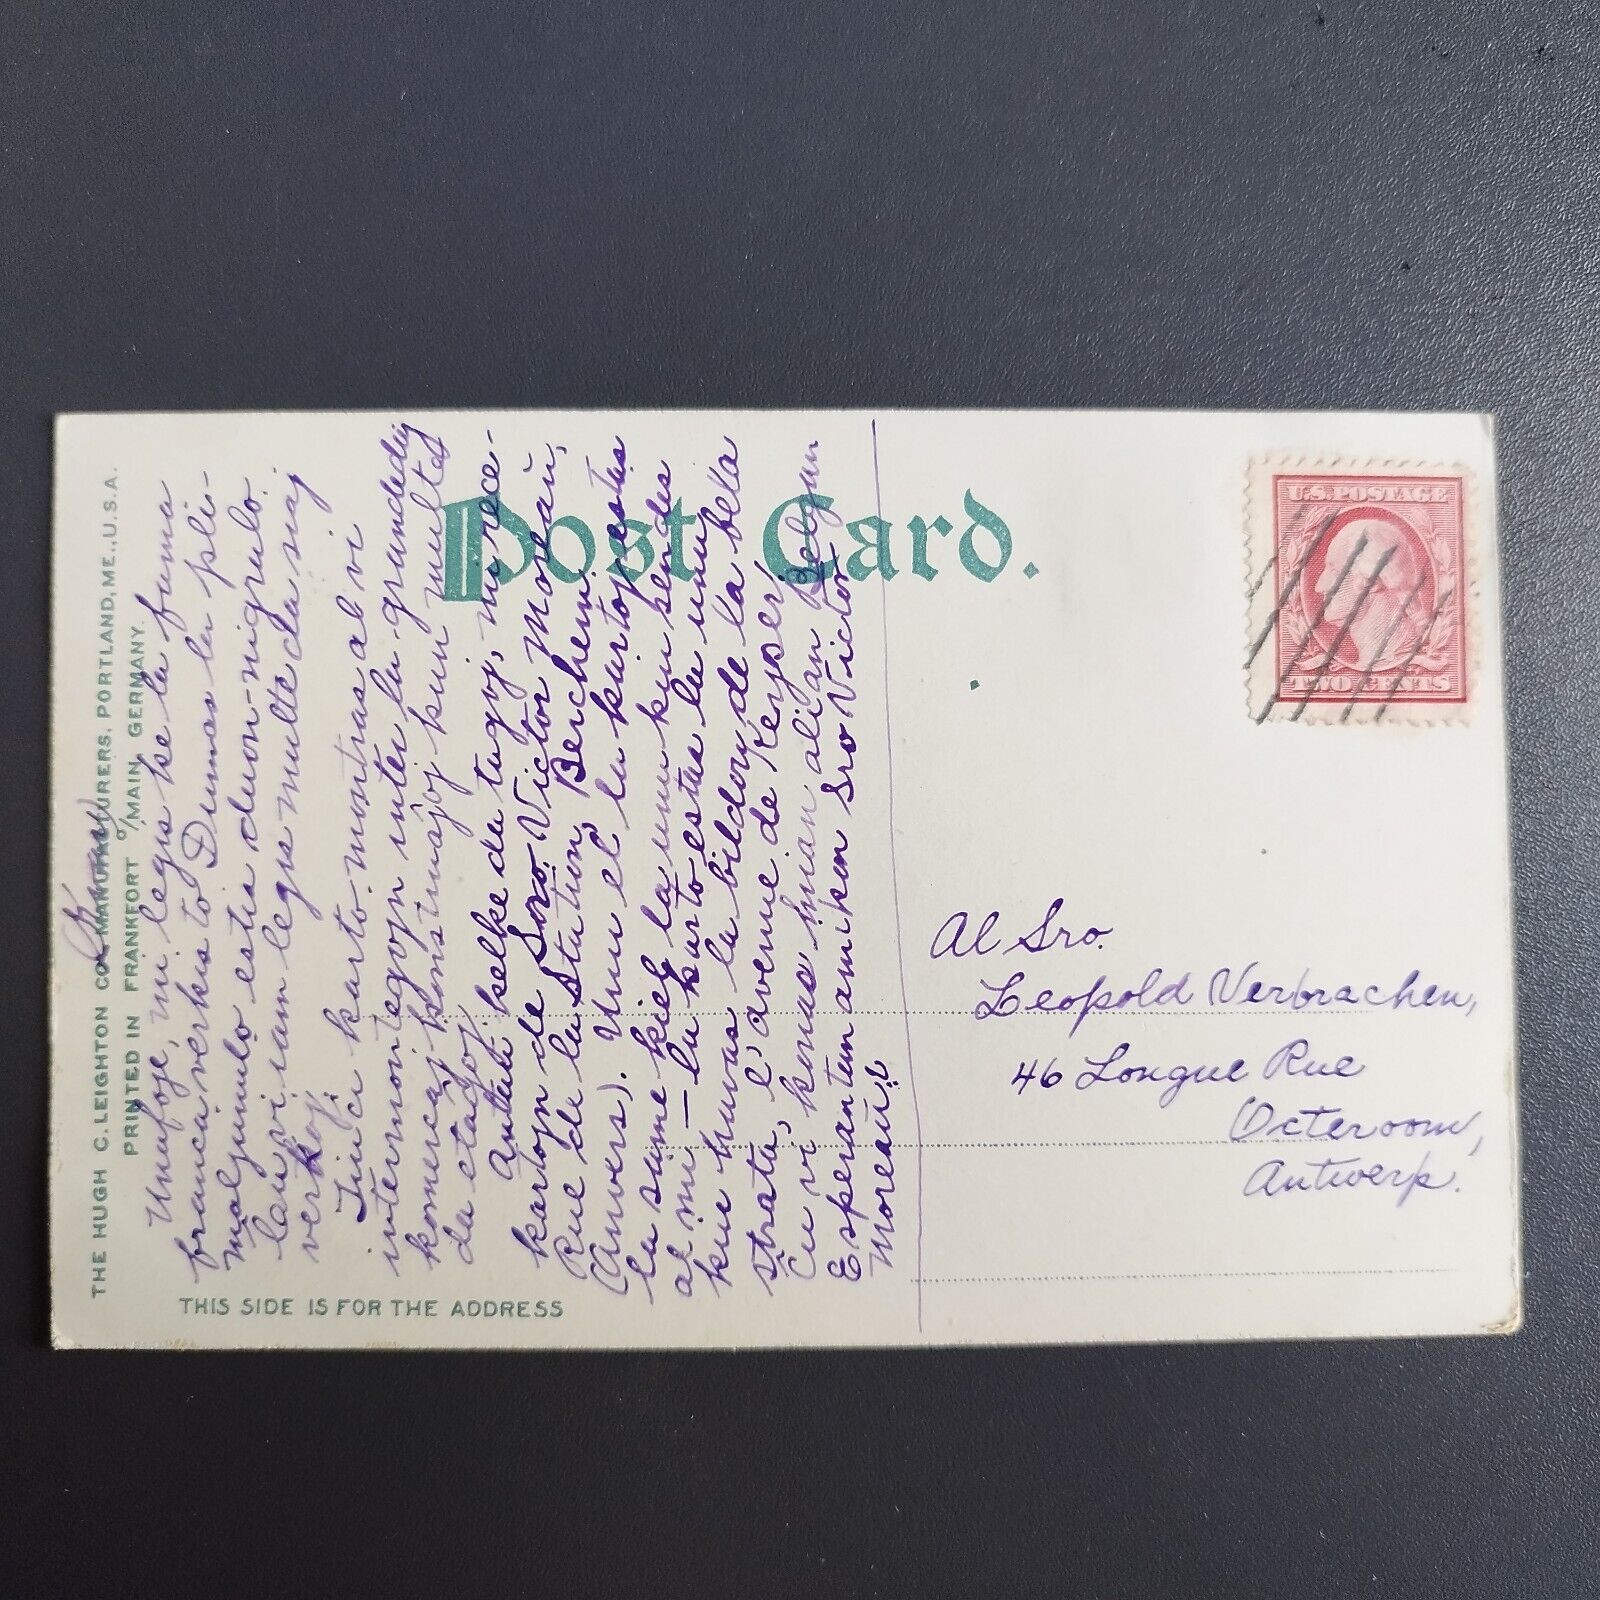 THE HUGH C. LEIGHTON CO., MANUFACTURERS, PORTLAND, ME., U.S.A.
PRINTED IN FRANKFORT o/MAIN GERMANY.
Post Card.
THIS SIDE IS FOR THE ADDRESS
U.S. POSTAGE
TWO CENTS
Unufoje, mi legis ke la fama
franca verkisto Dumas la pli-
maljunulo estis duon-nigrulo.
Ĉu vi iam legis multe da siaj
verkoj.
Tiu ĉi karto montras al vi
intermontegojn inter la grandaj
komercaj konstruaĵoj kun multaj
da etaĝoj.
Antaŭ kelke da tagoj, mi rece-
kartojn de Sro. Victor Moreaŭ,
Rue de la Station, Berchem
(Anvers). Unu el la kartoj estis
la sama kiel la unu kiu sendis
al mi — la karto estas la unu
kiu havas la bildon de la bella
strato, l'avenue de Keyser.
Ĉu vi konas tiun alian Belgan
Esperantan amikon Sro Victor
Moreaŭ?
Al Sro.
Leopold Verbrachen,
46 Longue Rue
Octeroom,
Antwerp.